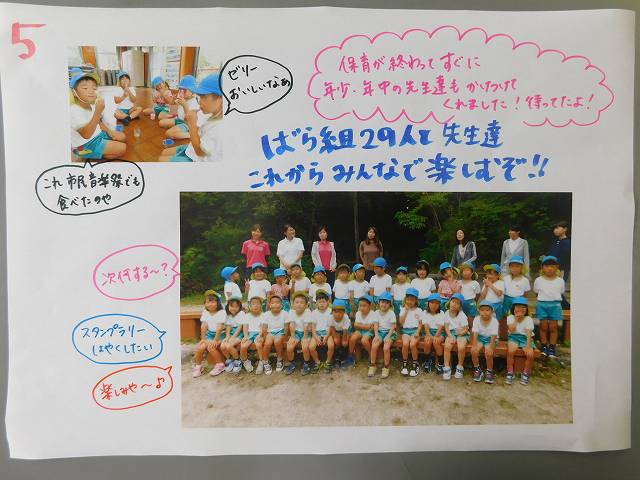 5
ゼリー
おいしいなぁ
保育が終わってすぐに
年少・年中の先生達も かけつけて
くれました！待ってたよ！
ばら組29人と 先生達
これからみんなで楽しむぞ!!
これ 市民音楽祭でも
食べたのや
次何する～？
スタンプラリー
はやくしたい
楽しみや～♪